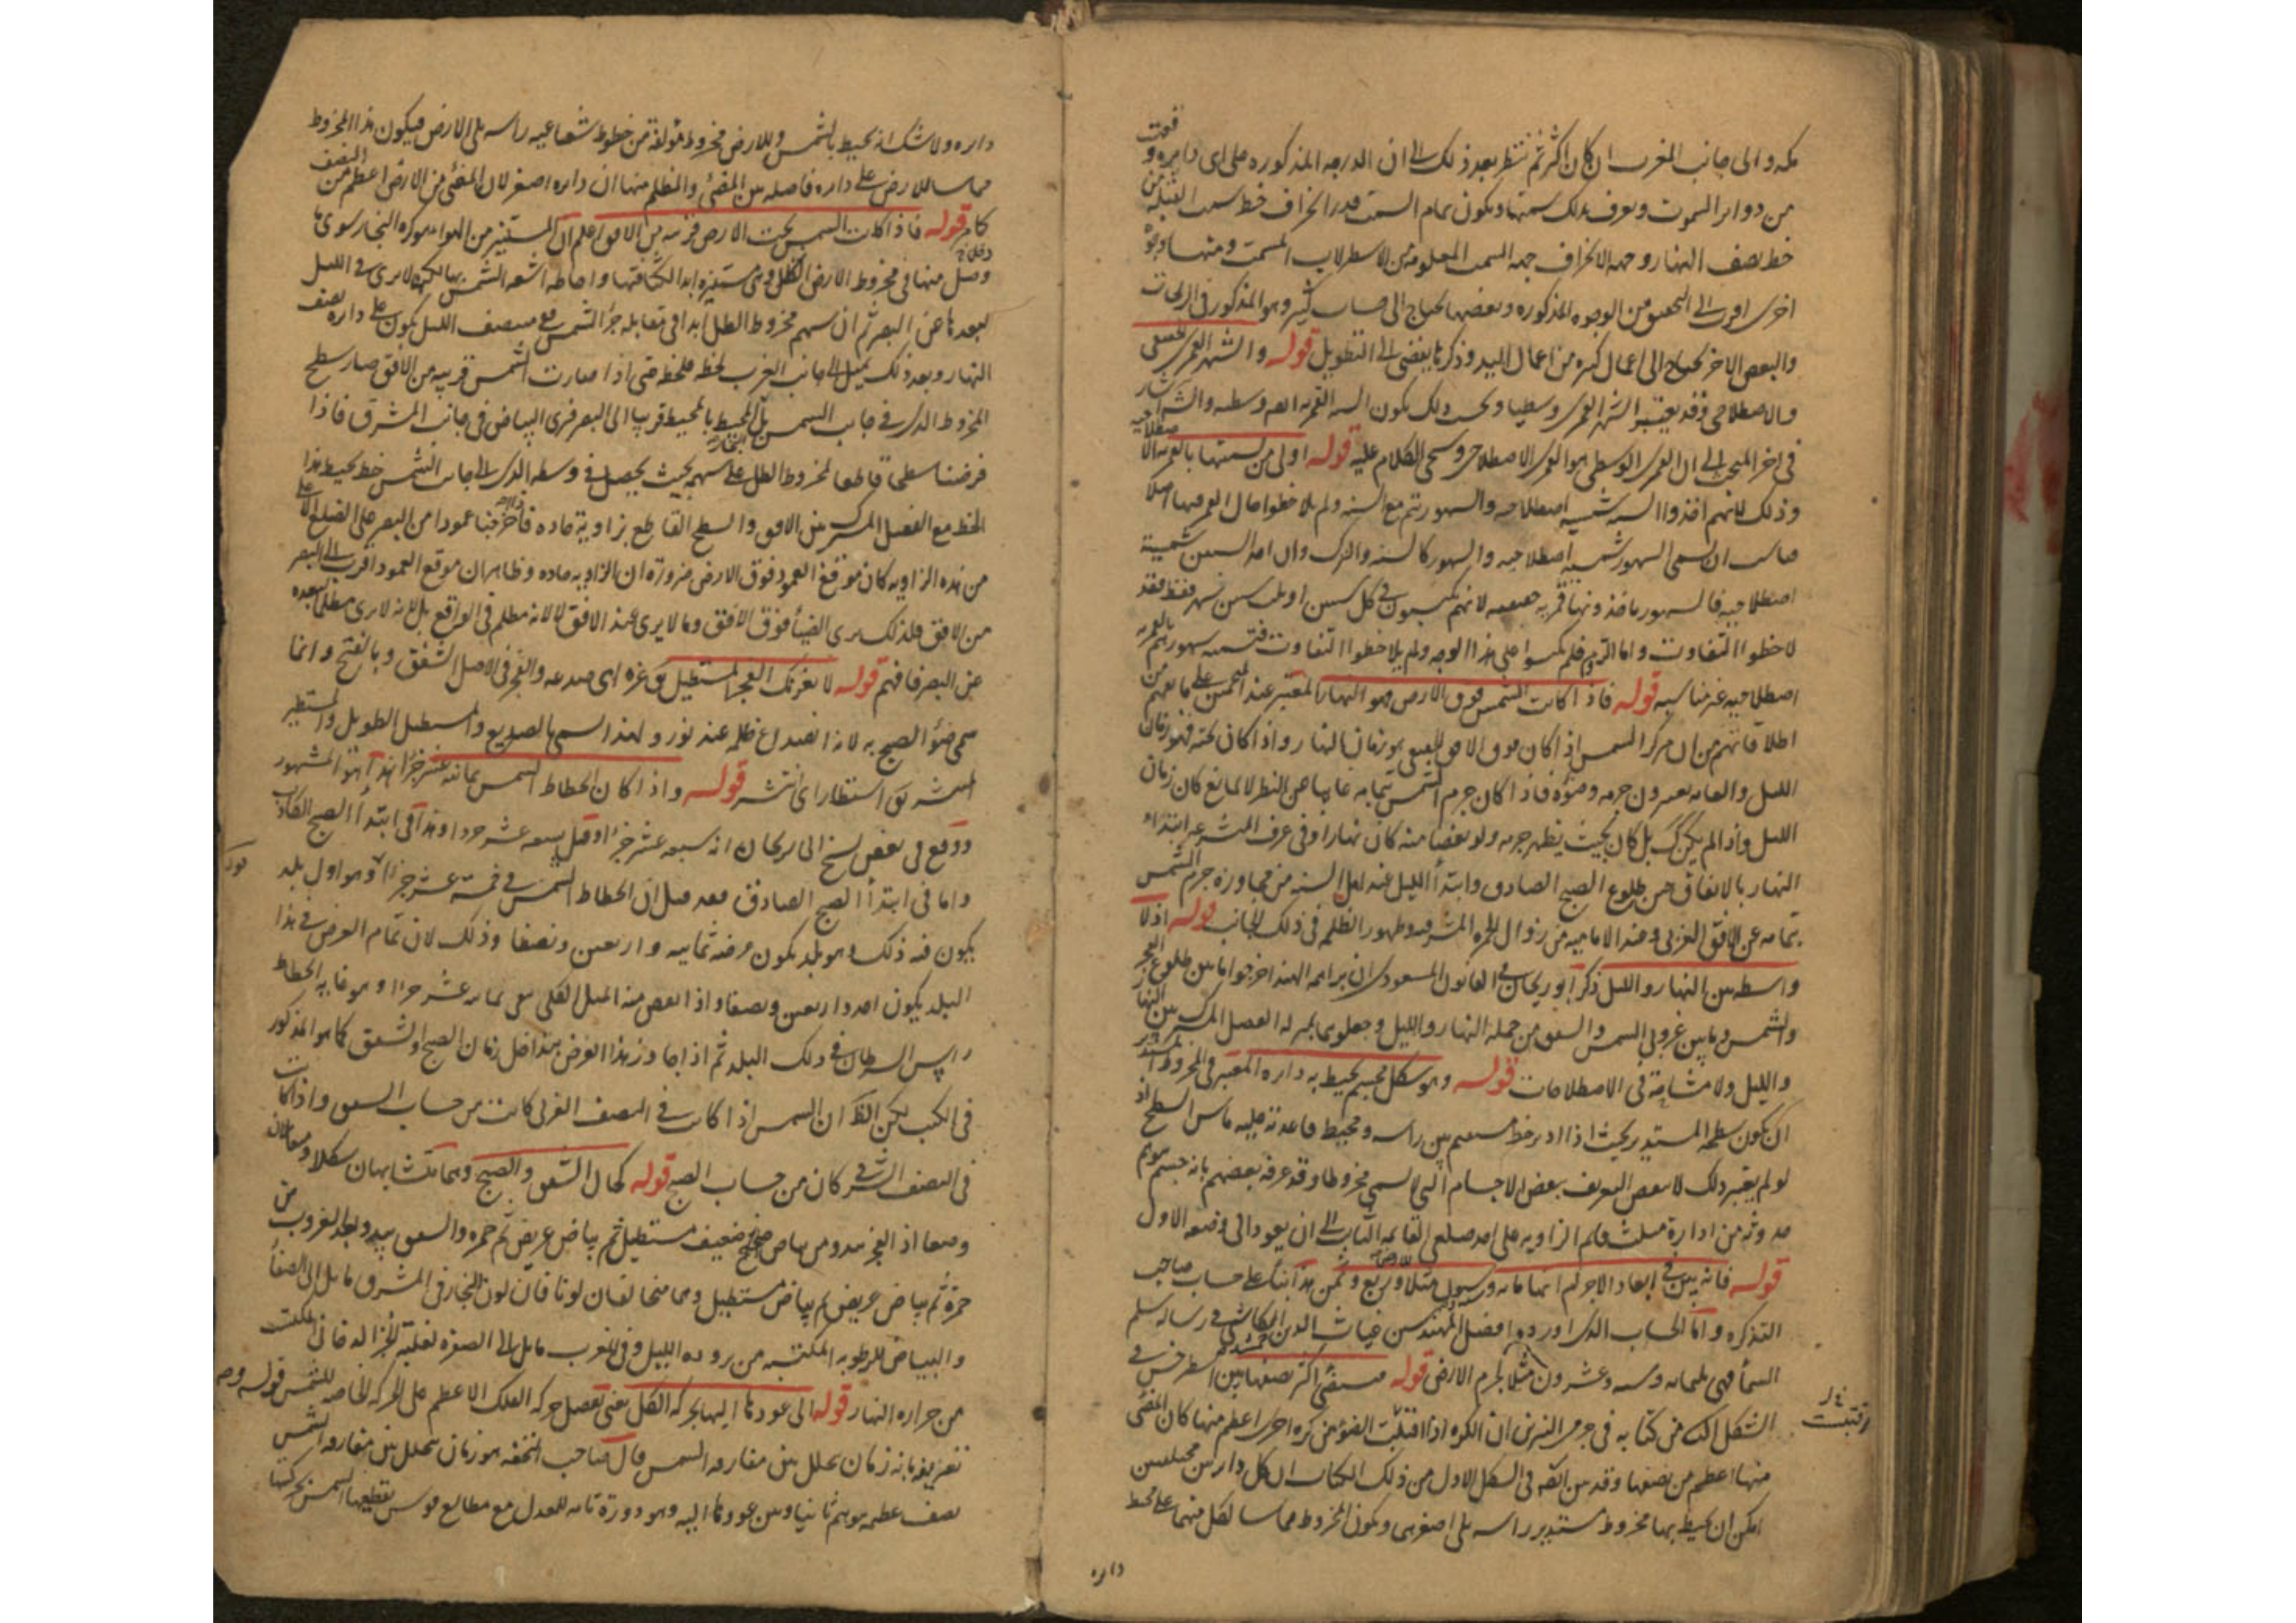 مكه والى جانب المغرب ان كان اكثر ثم ننتظر بعد ذلك الى ان الدرجه المذكوره على اى دايره وقعت
من دواير السموت ويعرف بذلك سمتها ويكون تمام السمت قدر انحراف خط سمت القبله من
خط نصف النهار وجهه الانحراف جهه السمت المعلومه من الاسطرلاب المسمت ومنها وجوه
اخرى اقرب الى التحقيق من الوجوه المذكوره وبعضها يحتاج الى حساب كثير وهو المذكور فى الزيجات
والبعض الاخر يحتاج الى اعمال كثيره من اعمال اليد وذكرها يفضى الى التطويل قوله والشهر القمرى حقيقى
والاصطلاحى وقد يعتبر الشهر القمرى وسطيا وبحسب ذلك يكون السنه القمريه ايضا وسطيه
فى اخر المبحث الى ان القمرى الوسطى هو القمرى الاصطلاحى وسيجئ الكلام عليه قوله اولى من تسميتها بالقمريه
وذلك لانهم اخذوا السنه شمسيه اصطلاحيه والشهور تتم مع السنه ولم يلاحظوا حال القمر فيها اصلا
ان يسمى الشهور شمسيه اصطلاحيه والشهور كالسنه والترك وان اخذ السنين شمسية
اصطلاحيه فالشهور ماخذونها قمريه حقيقيه لانهم يكبسون فى كل سنين او ثلث سنين شهر فقط فقد
لاحظوا التفاوت واما الروم فلم يكبسوا على هذا الوجه ولم يلاحظوا التفاوت فتسميه شهورهم بالقمريه
اصطلاحيه غير مناسبه قوله فاذا كانت الشمس فوق الارض فهو النهار المعتبر عند المنجمين على ما يفهم من
اطلاقاتهم من ان مركز الشمس اذا كان فوق الافق الحقيقى فهو زمان النهار واذا كان تحته فهو زمان
الليل والعامه يعتبرون جرمه وضوءه فاذا كان جرم الشمس بتمامه غايبا عن النظر لا لمانع كان زمان
الليل واذا لم يكن كك بل كان بحيث يظهر جرمه ولو بعضا منه كان نهارا وفى عرف المتشرعه ابتداء
النهار بالاتفاق من طلوع الصبح الصادق وابتدأ الليل عند اهل السنه من مجاوزه جرم الشمس
بتمامه عن الافق الغربى وعند الاماميه من زوال الحمره المشرقيه وظهور الظلمه فى ذلك الجانب قوله اذ لا
واسطه بين النهار والليل ذكر ابو ريحان فى القانون المسعودى ان براهمه الهند اخرجوا ما بين طلوع الفجر
والشمس وما بين غروب الشمس والشفق من جمله النهار والليل وجعلوهما بمنزله الفصل المشترك بين النهار
والليل ولا مشاحة فى الاصطلاحات قوله وهو شكل مجسم يحيط به دايره المعتبر فى المخروط المستدير
ان يكون سطحه المستدير بحيث اذا ادير خط مستقيم بين راسه ومحيط قاعدته عليه ماس السطح اذ
لو لم يعتبر ذلك لانتقض التعريف ببعض الاجسام التى لا يسمى مخروطا وقد عرفه بعضهم بانه جسم يتوهم
حدوثه من ادارة مثلث قايم الزاويه على احد ضلعى القايمه الثابت الى ان يعود الى وضعه الاول
قوله فانه يبين فى ابعاد الاجرام انها مايه وستون مثلا وربع وثمن هذا بناء على حساب صاحب
التذكره واما الحساب الذى اورده افضل المهندسين غياث الدين جمشيد الكاشى فى رساله سلم
السمأ فهى ثلثمايه وسته وعشرون مثلا لجرم الارض قوله مستضئ اكثر نصفها بين ارسطرخس فى
الشكل الثانى من كتابه فى جرمى النيرين ان الكره اذا اقتبلت الضوء من كره اخرى اعظم منها كان المضئ
منها اعظم من نصفها وقد بين ايضه فى الشكل الاول من ذلك الكتاب ان كل دايرتين مختلفتين
امكن ان يحيط بهما مخروط مستدير راسه يلى اصغرهما ويكون المخروط مماسا لكل منهما على محيط
دايره
دايره ولا شك انه يحيط بالشمس وللارض مخروط مؤلفة من خطوط شعاعيه راسه يلى الارض فيكون هذا المخروط
مماسا للارض على دايره فاصله بين المضئ والمظلم منها ان دايره اصغر لان المضئ من الارض اعظم من النصف
كما مر قوله فاذا كانت الشمس تحت الارض قريبه من الافق اعلم ان المستنير من الهواء هو كره البخار سوى ما
دخل منها فى مخروط الارض الظل وهى مستنيره ابدا لكثافتها واحاطه اشعه الشمس بها لكنها لا يرى فى الليل
لبعدها عن البصر ثم ان سهم مخروط الظل ابدا فى مقابله جزأ الشمس فى منتصف الليل يكون على دايره نصف
النهار وبعد ذلك يميل الى جانب الغرب لحظه فلحظه حتى اذا صارت الشمس قريبه من الافق صار سطح
المخروط الذى فى جانب الشمس قريبا الى البصر فيرى البياض فى جانب المشرق فاذا
فرضنا سطحا قاطعا لمخروط الظل على سهمه بحيث يحصل فى وسطه الذى الى جانب الشمس خط يحيط هذا
الخط مع الفصل المشترك بين الافق والسطح القاطع بزاوية حاده فاذا اخرجنا عمودا من البصر على الضلع
من هذه الزاويه كان موقع العمود فوق الارض ضرورة ان الزاويه حاده وظاهر ان موقع العمود اقرب الى البصر
من الافق فلذلك يرى الضيأ فوق الافق وما لا يرى عند الافق لا لانه مظلم فى الواقع بل لانه لا يرى مظلما لبعده
عن البصر فافهم قوله لا يغرنك الفجر المستطيل يق غره اى خدعه والفجر فى الاصل الشفق وبالفتح وانما
سمى ضوء الصبح به لانه انصداع ظلمه عند نور ولهذا يسمى بالصديع والمستطيل الطويل والمستطير
المنتشر يق استطار اى انتشر قوله واذا كان انحطاط الشمس ثمانيه عشر جزأ هذا هو المشهور
ووقع فى بعض نسخ ابى ريحان انه سبعه عشر جزأ وقيل تسعه عشر جزأ وهذا فى ابتدأ الصبح الكاذب
واما فى ابتدأ الصبح الصادق فقد قيل ان انحطاط الشمس فى خمسة عشر جزأ وهو اول بلد
يكون فيه ذلك هو بلد يكون عرضه ثمانيه واربعين ونصفا وذلك لان تمام العرض فى هذا
البلد يكون احد واربعين ونصفا واذا نقص منه الميل الكلى بقى ثمانيه عشر جزأ وهو غايه انحطاط
راس السرطان فى ذلك البلد ثم اذا جاوز هذا العرض يتداخل زمان الصبح والشفق كما هو المذكور
فى الكتب لكن الظ ان الشمس اذا كانت فى النصف الغربى كانت من حساب الشفق واذا كانت
فى النصف الشرقى كان من حساب الصبح قوله كحال الشفق والصبح وهما متشابهان شكلا ومتقابلان
وضعا اذ الفجر يبدو من بياض ضعيف مستطيل ثم بياض عريض ثم حمره والشفق يبدو بعد الغروب من
حمرة ثم بياض عريض ثم بياض مستطيل وهما متخالفان لونا فان لون البخار فى المشرق مايل الى الصفأ
والبياض للرطوبه المكتسبه من بروده الليل وفى المغرب مايل الى الصفره لغلبة الجزأ الدخانى المكتسب
من حراره النهار قوله الى عودها اليها بحركه الكل يعنى بفصل حركه الفلك الاعظم على الحركه الخاصه للشمس قوله وهو
تعريفه بانه زمان يتخلل بين مفارقه الشمس قال صاحب التحفه هو زمان يتخلل بين مفارقه الشمس
نصف عظيمه يتوهم ثانيا وبين عودها اليه وهو دورة تامه للمعدل مع مطالع قوس يقطعها الشمس بحركتها